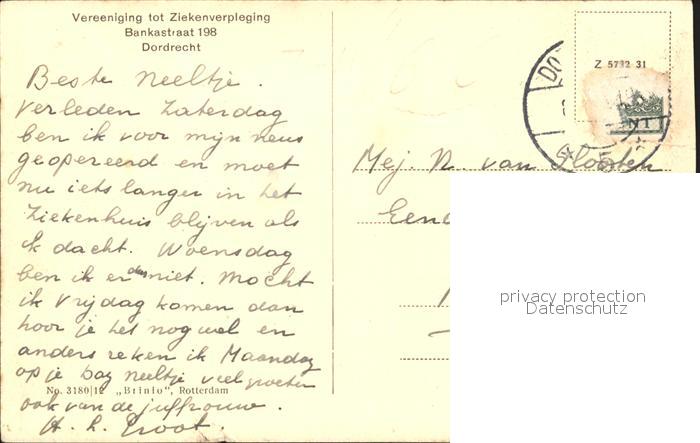 Vereeniging tot Ziekenverpleging
Bankastraat 198
Dordrecht
Beste Neeltje.
Verleden Zaterdag
ben ik voor mijn neus
geopereerd en moet
nu iets langer in het
Ziekenhuis blijven als
ik dacht. Woensdag
ben ik er dus niet. Mocht
ik Vrijdag komen dan
hoor je het nog wel en
anders reken ik Maandag
op je. Dag Neeltje veel groeten
ook van de juffrouw.
No. 3180|12 „Brinio", Rotterdam
Z 5732 31
DO
NT
Mej. N. van
privacy protection
Datenschutz